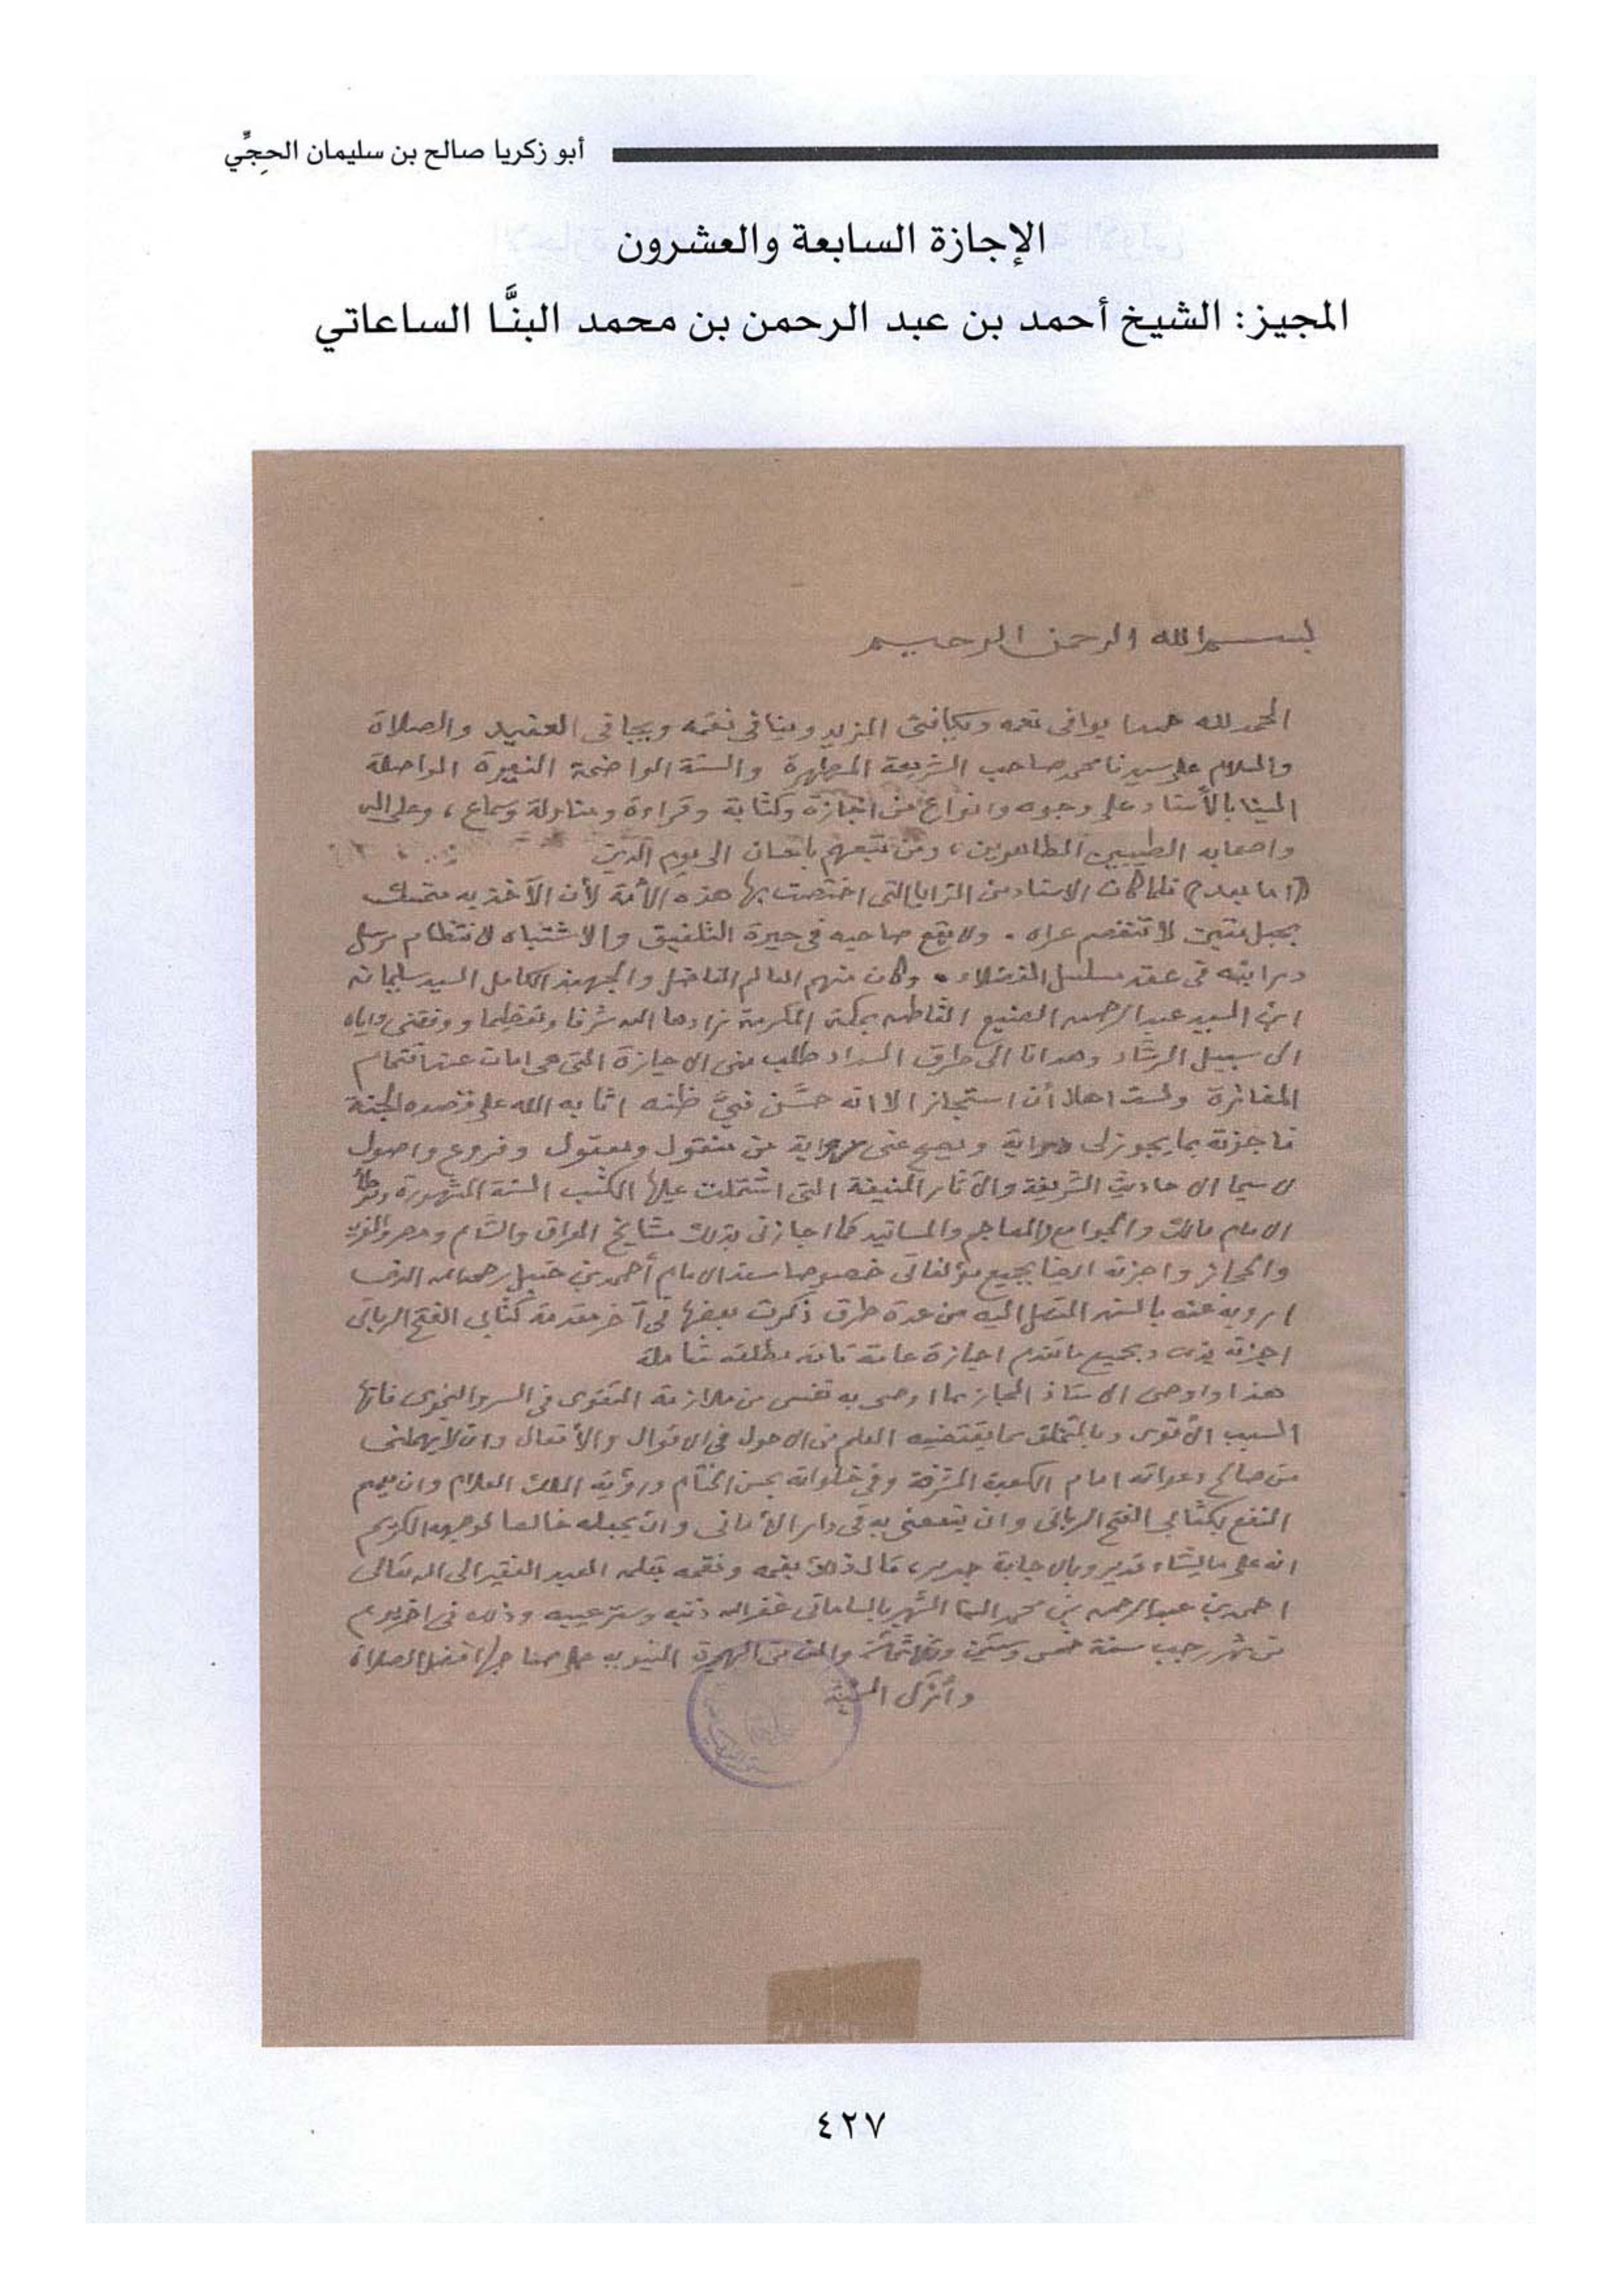 أبو زكريا صالح بن سليمان الحِجِّي
الإجازة السابعة والعشرون
المجيز: الشيخ أحمد بن عبد الرحمن بن محمد البنَّا الساعاتي
بسم الله الرحمن الرحيم
الحمد لله حمدا يوافى نعمه ويكافئ المزيد وينافى نقمه ويجافى العقيد والصلاة
والسلام على سيدنا محمد صاحب الشريعة المطهرة والسنة الواضحة النيرة الواصلة
الينا بالأسناد على وجوه وانواع من اجازة وكتابة وقراءة ومناولة وسماع ، وعلى اله
واصحابه الطيبين الطاهرين ، ومن تبعهم باحسان الى يوم الدين
(اما بعد) فلما كان الاسناد من المزايا التى اختصت بها هذه الأمة لأن الآخذ به متمسك
بحبل متين لا تنفصم عراه . ولا يقع صاحبه فى حيرة التلفيق والاشتباه لانتظام مرسل
درايته فى عقد مسلسل الفضلاء . وكان منهم العالم الفاضل والجهبذ الكامل السيد سليمان
ابن السيد عبد الرحمن الصنيع القاطن بمكة المكرمة زادها الله شرفا وتعظيما ووفقنى واياه
الى سبيل الرشاد وهدانا الى طرق السداد طلب منى الاجازة التى هى امات عنها قتمام
المفاخرة ولست اهلا أن استجاز الا انه حسَّن فيَّ ظنه اثابه الله على قصده الجنة
فاجزته بما يجوز لى رواية ويصح عنى دراية من منقول ومعقول وفروع واصول
لا سيما الاحاديث الشريفة والآثار المنيفة التى اشتملت عليها الكتب الستة المشهورة وموطأ
الامام مالك والجوامع والمعاجم والمسانيد كما اجازنى بذلك مشايخ العراق والشام ومصر والمغرب
والحجاز واجزته ايضا بجميع مؤلفاتى خصوصا مسند الامام أحمد بن حنبل رحمه الله الذى
ارويه عنه بالسند المتصل اليه من عدة طرق ذكرت بعضها فى آخر مقدمة كتابى الفتح الربانى
اجزته بذلك وبجميع ما تقدم اجازة عامة تامة مطلقة شاملة
هذا واوصى الاستاذ المجاز بما اوصى به نفسى من ملازمة التقوى فى السر والنجوى فانها
السبب الأقوى وبالتخلق بما يقتضيه العلم من الاحول فى الاقوال والأفعال وان لا يهملنى
من صالح دعواته امام الكعبة المشرفة وفى خلواته بحسن الختام ورؤية الملك العلام وان يعم
النفع بكتابى الفتح الربانى وان ينفعنى به فى دار الأمانى وان يجعله خالصا لوجهه الكريم
انه على ما يشاء قدير وبالاجابة جدير ، قال ذلك بفمه ونمقه بقلمه العبد الفقير الى الله تعالى
احمد بن عبد الرحمن بن محمد البنا الشهير بالساعاتى غفر الله ذنبه وستر عيبه وذلك فى اخر يوم
من شهر رجب سنة خمس وستين وثلاثمائة والف من الهجرة النبوية على صاحبها افضل الصلاة
وأزكى التحية
٤٢٧